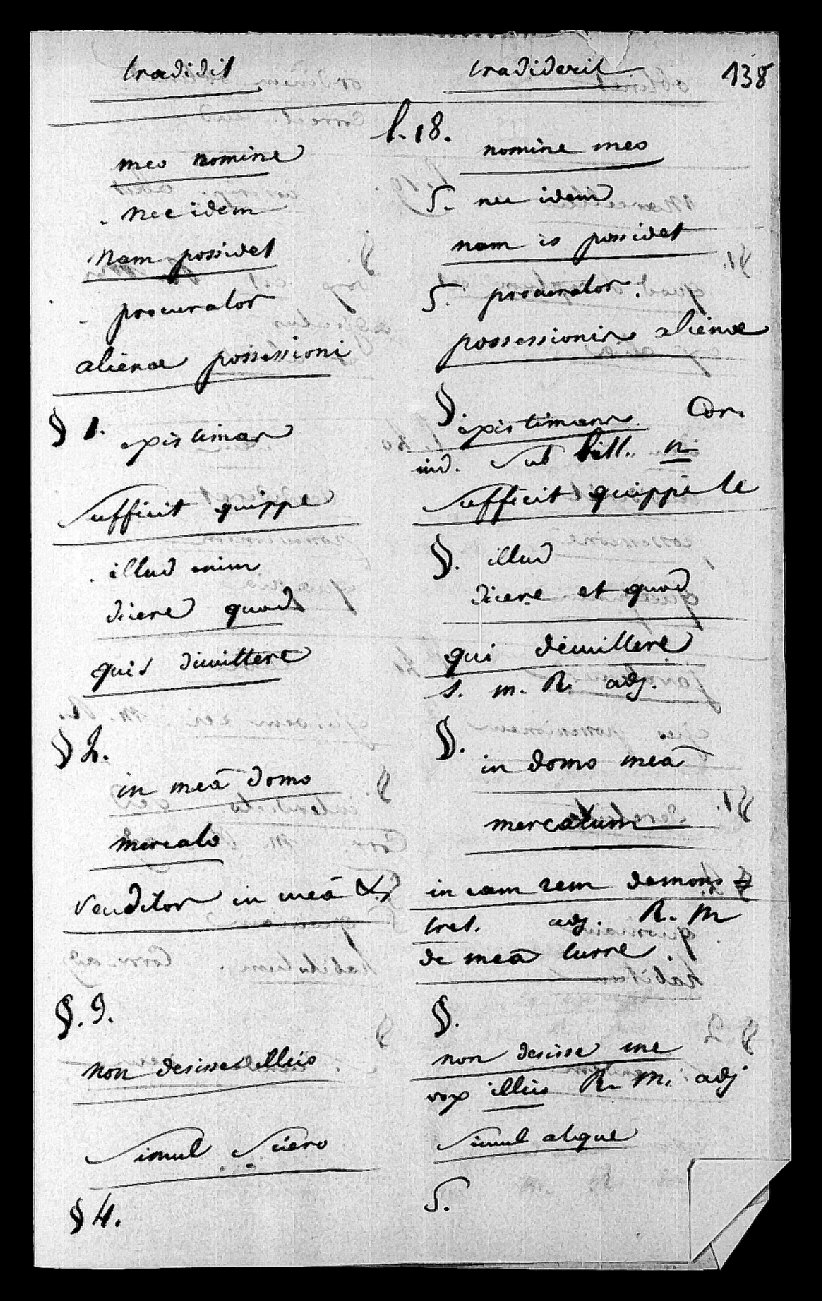 tradidit tradiderit 138
l. 18.
meo nomine nomine meo
nec idem §. nec idem
nam possidet nam is possidet
procurator §. procurator.
alienae possessioni possessionis alienae
§ 1. §.
existimas existimans. Cor.
ind. sub litt. n
sufficit quippe sufficit quippe te
illud enim §. illud
dicere quod dicere et quod
quis dimittere qui dimittere
s. m. R. adj.
§ 2. §.
in meâ domo in domo meâ
mercato mercatum
venditor in meâ in eam rem demons=
tret. adj. R. m
de meâ turre.
§. 3. §.
non desisse illius non desisse me
vox illius R. m. adj
simul sciero simul atque
§ 4. §.